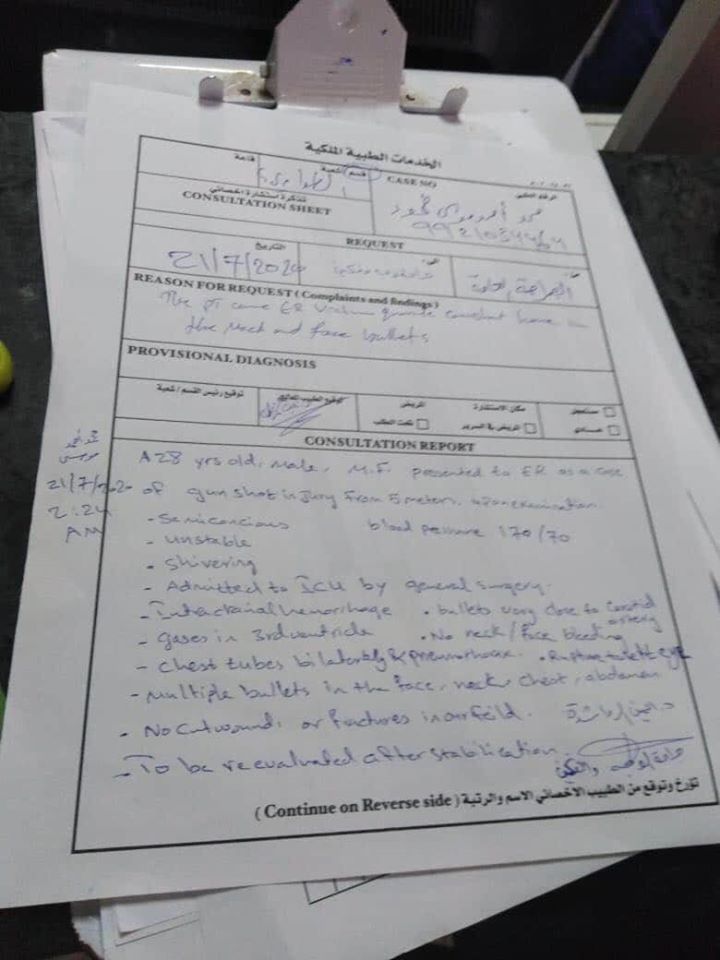 الخدمات الطبية الملكية
قاعة
قسم / شعبة
CASE NO
الرقم الطبي
تذكرة استشارة اخصائي
CONSULTATION SHEET
REQUEST
التاريخ
21/7/2020
من
الى
الجراحة العامة
REASON FOR REQUEST ( Complaints and findings )
The pt came ER
the neck and face bullets
PROVISIONAL DIAGNOSIS
توقيع رئيس القسم / شعبة
توقيع الطبيب المعالج
المريض
مكان الاستشارة
مستعجل
تحت الطلب
المريض في السرير
عادي
CONSULTATION REPORT
21/7/2020
2:24
AM
A 28 yrs old, male, M.F. presented to ER as a case
of gun shot injury from 5 meters, upon examination
- Semiconcious blood pressure 170/70
- unstable
- Shivering
- Admitted to ICU by general surgery.
- Intracranial hemorrhage • bullets very close to carotid artery
- gases in 3rd ventricle • No neck/face bleeding
- chest tubes bilaterally & • Rupture left eye
- multiple bullets in the face, neck, chest, abdomen
- No cut wound, or fractures in our feild.
- To be reevaluated after stabilization.
تؤرخ وتوقع من الطبيب الاخصائي الاسم والرتبة ( Continue on Reverse side )